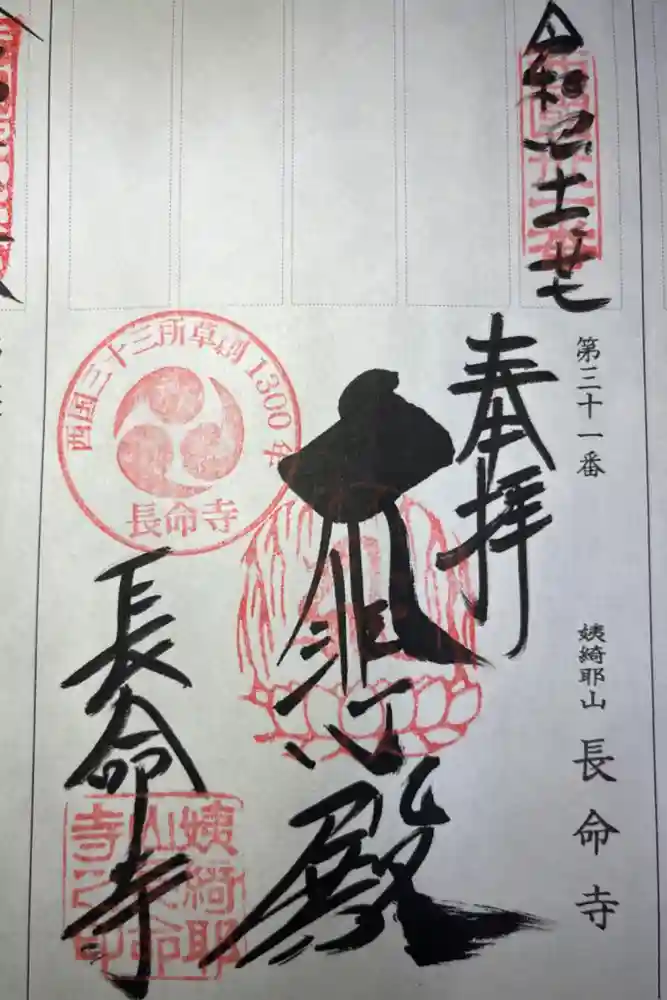 令和四 十一 廿七
第三十一番
姨綺耶山 長命寺
奉拝
大悲殿
西国三十三所草創1300年
長命寺
長命寺
姨綺耶
山長命
寺之印